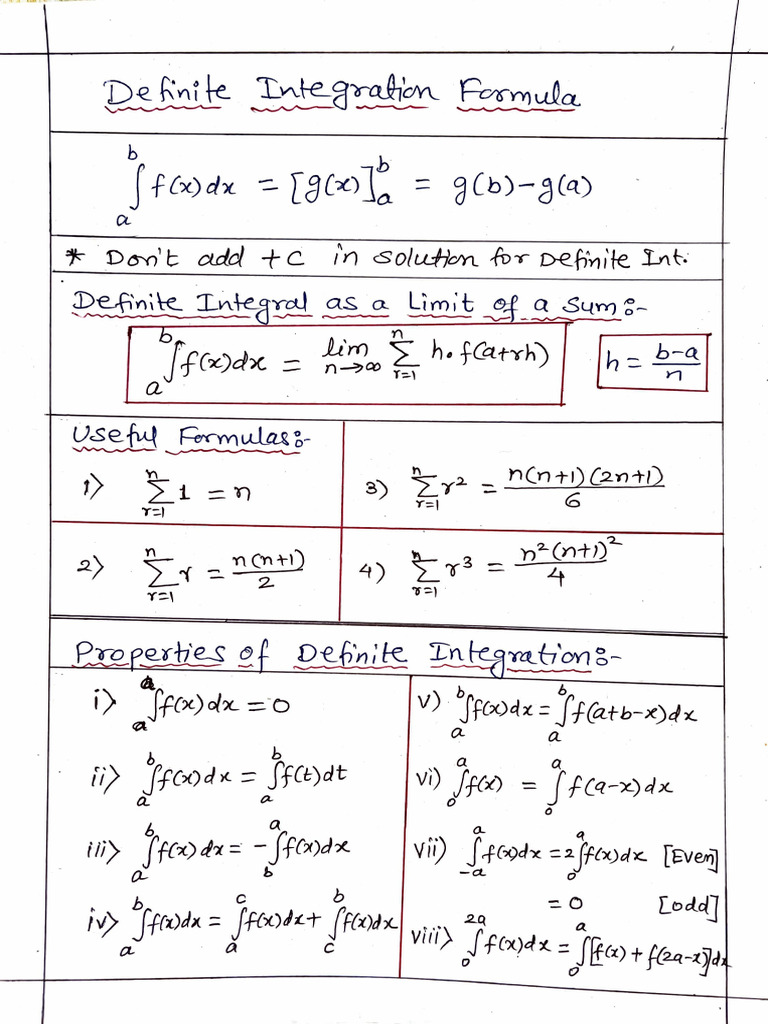 Definite Integration Formula
∫ₐᵇ f(x)dx = [g(x)]ₐᵇ = g(b)-g(a)
* Don't add +C in solution for Definite Int.
Definite Integral as a Limit of a sum:-
∫ₐᵇ f(x)dx = lim n→∞ Σ r=1 n h.f(a+rh)
h = (b-a)/n
Useful Formulas:-
1) Σ r=1 n 1 = n
2) Σ r=1 n r = n(n+1)/2
3) Σ r=1 n r² = n(n+1)(2n+1)/6
4) Σ r=1 n r³ = n²(n+1)²/4
Properties of Definite Integration:-
i) ∫ₐᵃ f(x)dx = 0
ii) ∫ₐᵇ f(x)dx = ∫ₐᵇ f(t)dt
iii) ∫ₐᵇ f(x)dx = -∫_b^a f(x)dx
iv) ∫ₐᵇ f(x)dx = ∫ₐᶜ f(x)dx + ∫_c^b f(x)dx
v) ∫ₐᵇ f(x)dx = ∫ₐᵇ f(a+b-x)dx
vi) ∫₀ᵃ f(x) = ∫₀ᵃ f(a-x)dx
vii) ∫₋ₐᵃ f(x)dx = 2∫₀ᵃ f(x)dx [Even]
= 0 [odd]
viii) ∫₀²ᵃ f(x)dx = ∫₀ᵃ [f(x) + f(2a-x)]dx